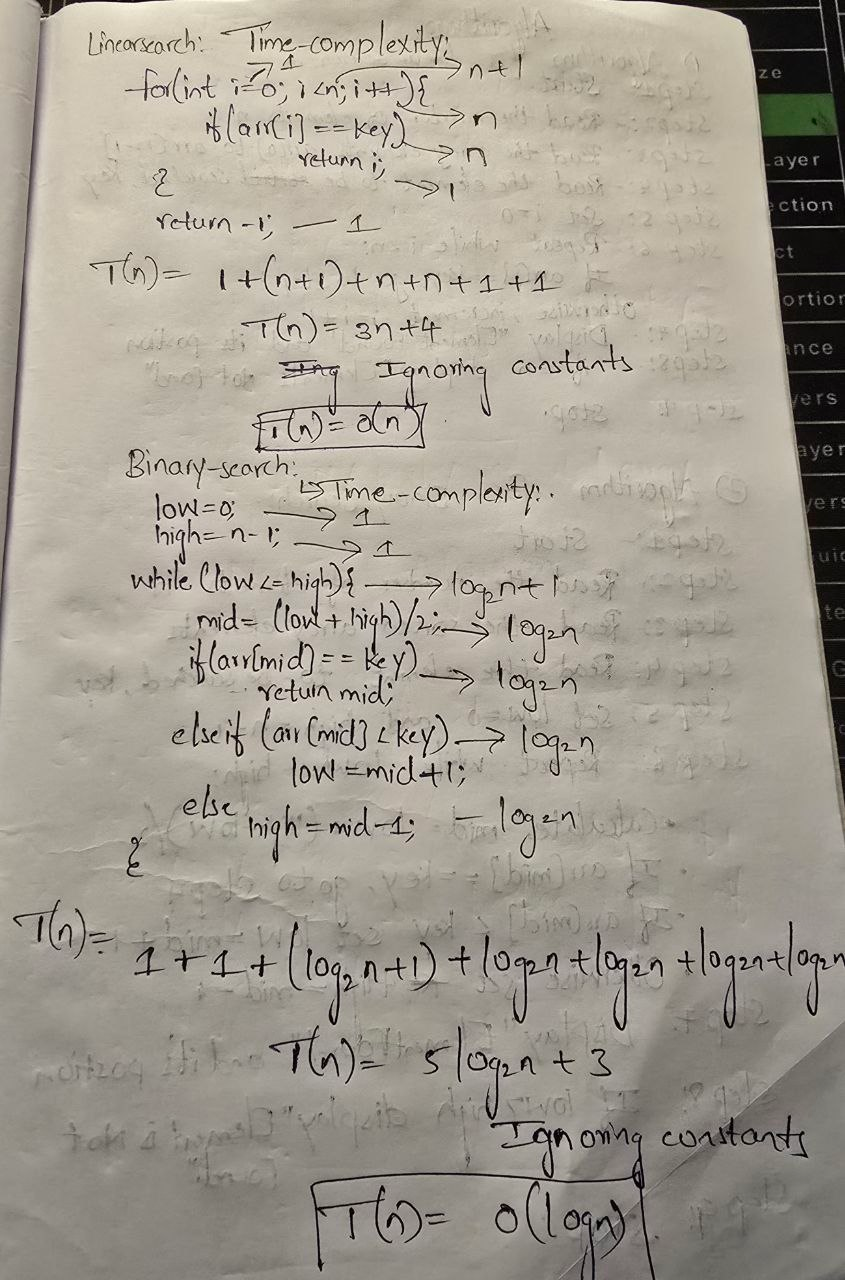 Linearsearch: Time-complexity:
for(int i=0; i<n; i++){ → 1 → n+1
→ n
if(arr[i]==key) → n
return i; → 1
}
return -1; — 1
T(n)= 1+(n+1)+n+n+1+1
T(n)= 3n+4
Ignoring constants
T(n)= O(n)
Binary-search:
↳ Time-complexity:.
low=0; → 1
high=n-1; → 1
while (low<=high){ → log₂n+1
mid= (low+high)/2; → log₂n
if(arr[mid]==key) → log₂n
return mid;
elseif (arr[mid]<key) → log₂n
low=mid+1;
else
high=mid-1; — log₂n
}
T(n)=
1+1+(log₂n+1)+log₂n+log₂n+log₂n+log₂n
T(n)= 5log₂n+3
Ignoring constants
T(n)= O(logn)
ze
ayer
ction
ct
ortion
nce
yers
ayer
yers
uid
te